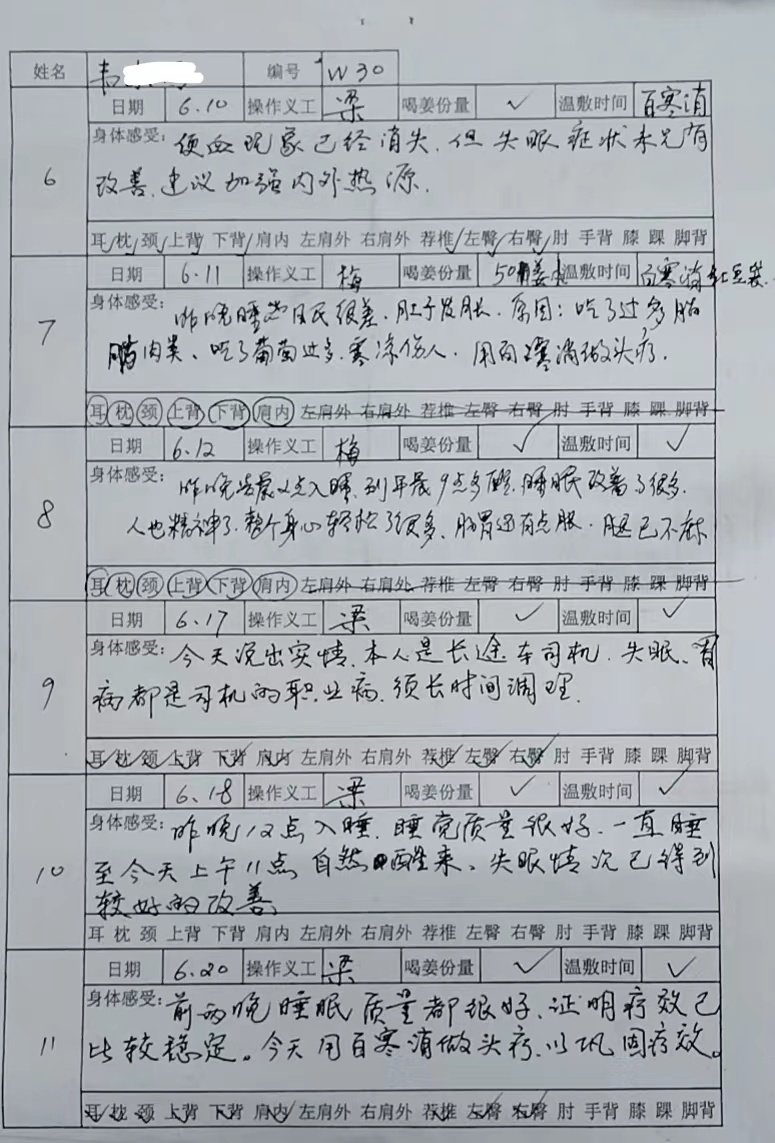 姓名 韦 编号 W30
日期 6.10 操作义工 梁 喝姜份量 ✓ 温敷时间 百寒消
6
身体感受: 便血现象已经消失，但失眠症状未见有
改善，建议加强内外热源.
耳 枕 颈 上背 下背 肩内 左肩外 右肩外 荐椎 左臀 右臀 肘 手背 膝 踝 脚背
日期 6.11 操作义工 梅 喝姜份量 温敷时间 百寒消
7
身体感受: 昨晚睡眠很差，肚子发胀，原因：吃了过多
肉类、吃了葡萄过多，寒凉伤人，用百寒消做头疗.
耳 枕 颈 上背 下背 肩内 左肩外 右肩外 荐椎 左臀 右臀 肘 手背 膝 踝 脚背
日期 6.12 操作义工 梅 喝姜份量 ✓ 温敷时间 ✓
8
身体感受: 昨晚点入睡，到早晨9点多醒，睡眠改善了很多.
人也精神了，整个身心轻松了很多，肠胃还有点胀，腿已不麻
耳 枕 颈 上背 下背 肩内 左肩外 右肩外 荐椎 左臀 右臀 肘 手背 膝 踝 脚背
日期 6.17 操作义工 梁 喝姜份量 ✓ 温敷时间 ✓
9
身体感受: 今天说出实情，本人是长途车司机，失眠、胃
病都是司机的职业病，须长时间调理.
耳 枕 颈 上背 下背 肩内 左肩外 右肩外 荐椎 左臀 右臀 肘 手背 膝 踝 脚背
日期 6.18 操作义工 梁 喝姜份量 ✓ 温敷时间 ✓
10
身体感受: 昨晚12点入睡，睡觉质量很好，一直睡
至今天上午11点自然醒来、失眠情况已得到
较好的改善
耳 枕 颈 上背 下背 肩内 左肩外 右肩外 荐椎 左臀 右臀 肘 手背 膝 踝 脚背
日期 6.20 操作义工 梁 喝姜份量 ✓ 温敷时间 ✓
11
身体感受: 前两晚睡眠质量都很好，证明疗效已
比较稳定。今天用百寒消做头疗，以巩固疗效。
耳 枕 颈 上背 下背 肩内 左肩外 右肩外 荐椎 左臀 右臀 肘 手背 膝 踝 脚背